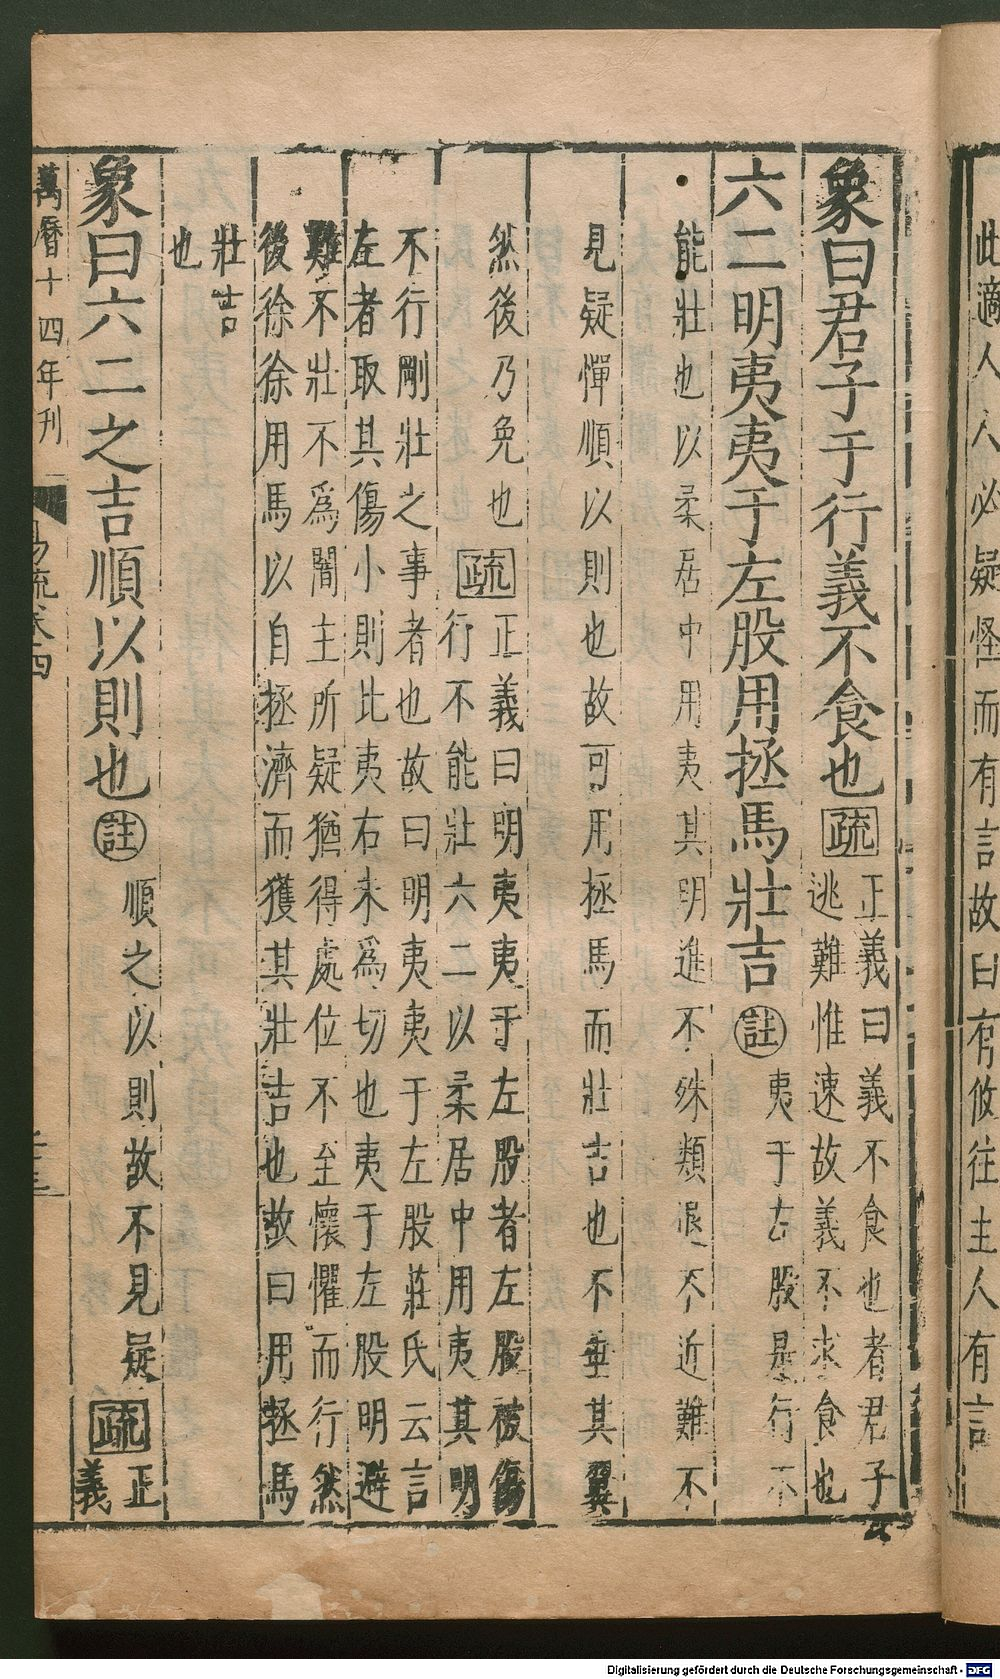 此適人人必疑怪而有言故曰有攸往主人有言
象曰君子于行義不食也疏
正義曰義不食也者君子
逃難惟速故義不求食也
六二明夷夷于左股用拯馬壯吉註
夷于左股是行不
能壯也以柔居中用夷其明進不殊類退不近難不
見疑憚順以則也故可用拯馬而壯吉也不垂其翼
然後乃免也疏
正義曰明夷夷于左股者左股被傷
行不能壯六二以柔居中用夷其明
不行剛壯之事者也故曰明夷夷于左股莊氏云言
左者取其傷小則比夷右未爲切也夷于左股明避
難不壯不爲闇主所疑猶得處位不至懷懼而行然
後徐徐用馬以自拯濟而獲其壯吉也故曰用拯馬
壯吉
也
象曰六二之吉順以則也註
順之以則故不見疑疏
正
義
萬曆十四年刊
易疏卷四
Digitalisierung gefördert durch die Deutsche Forschungsgemeinschaft - DFG